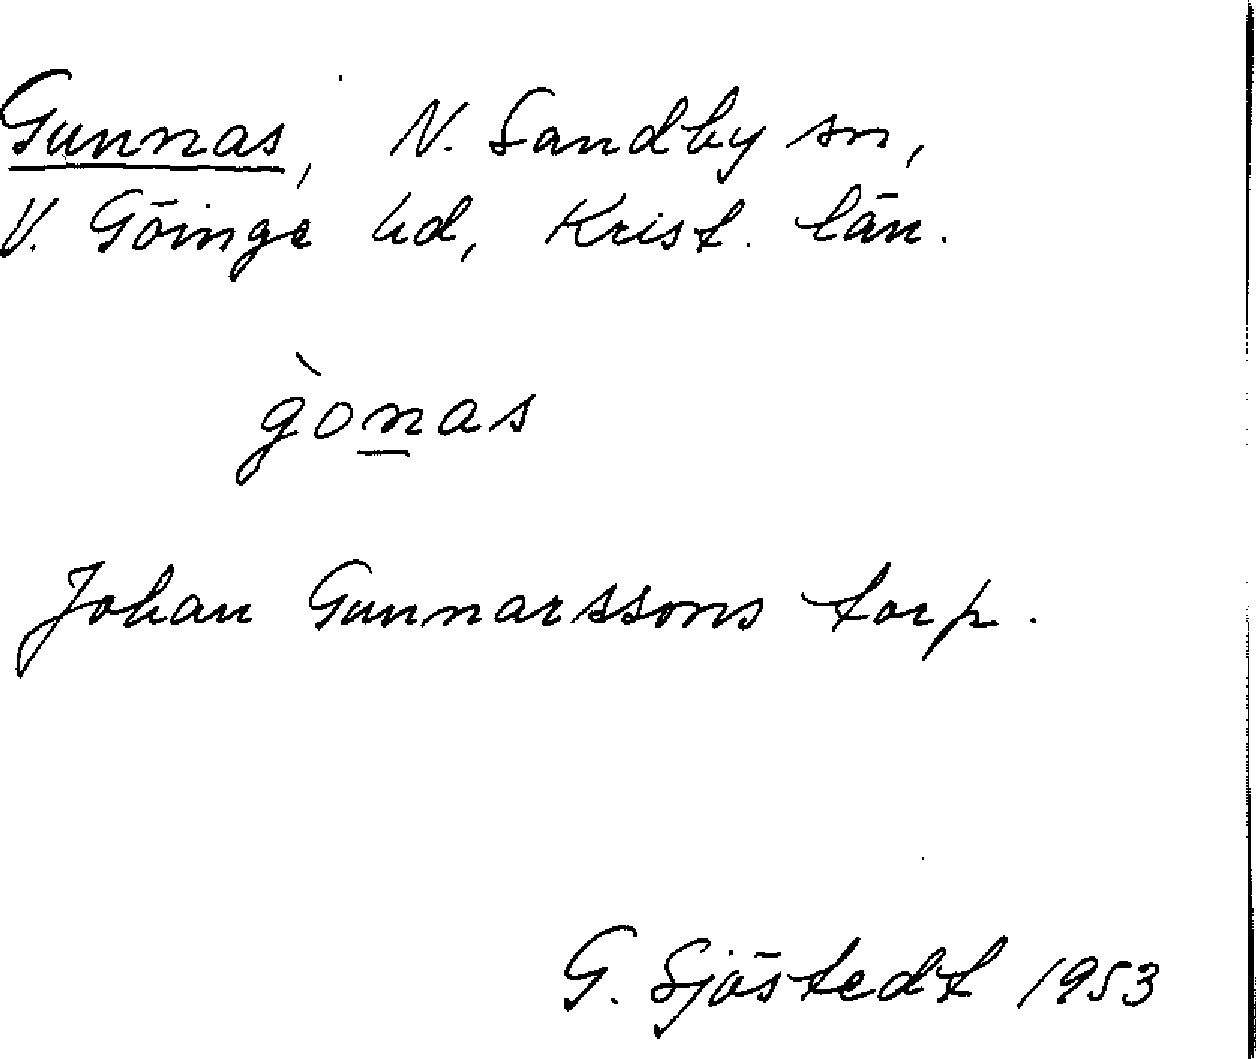 Gunnas, N. Sandby sn,
V. Göinge hd, Krist. län.
gònas
Johan Gunnarssons torp.
G. Sjöstedt 1953